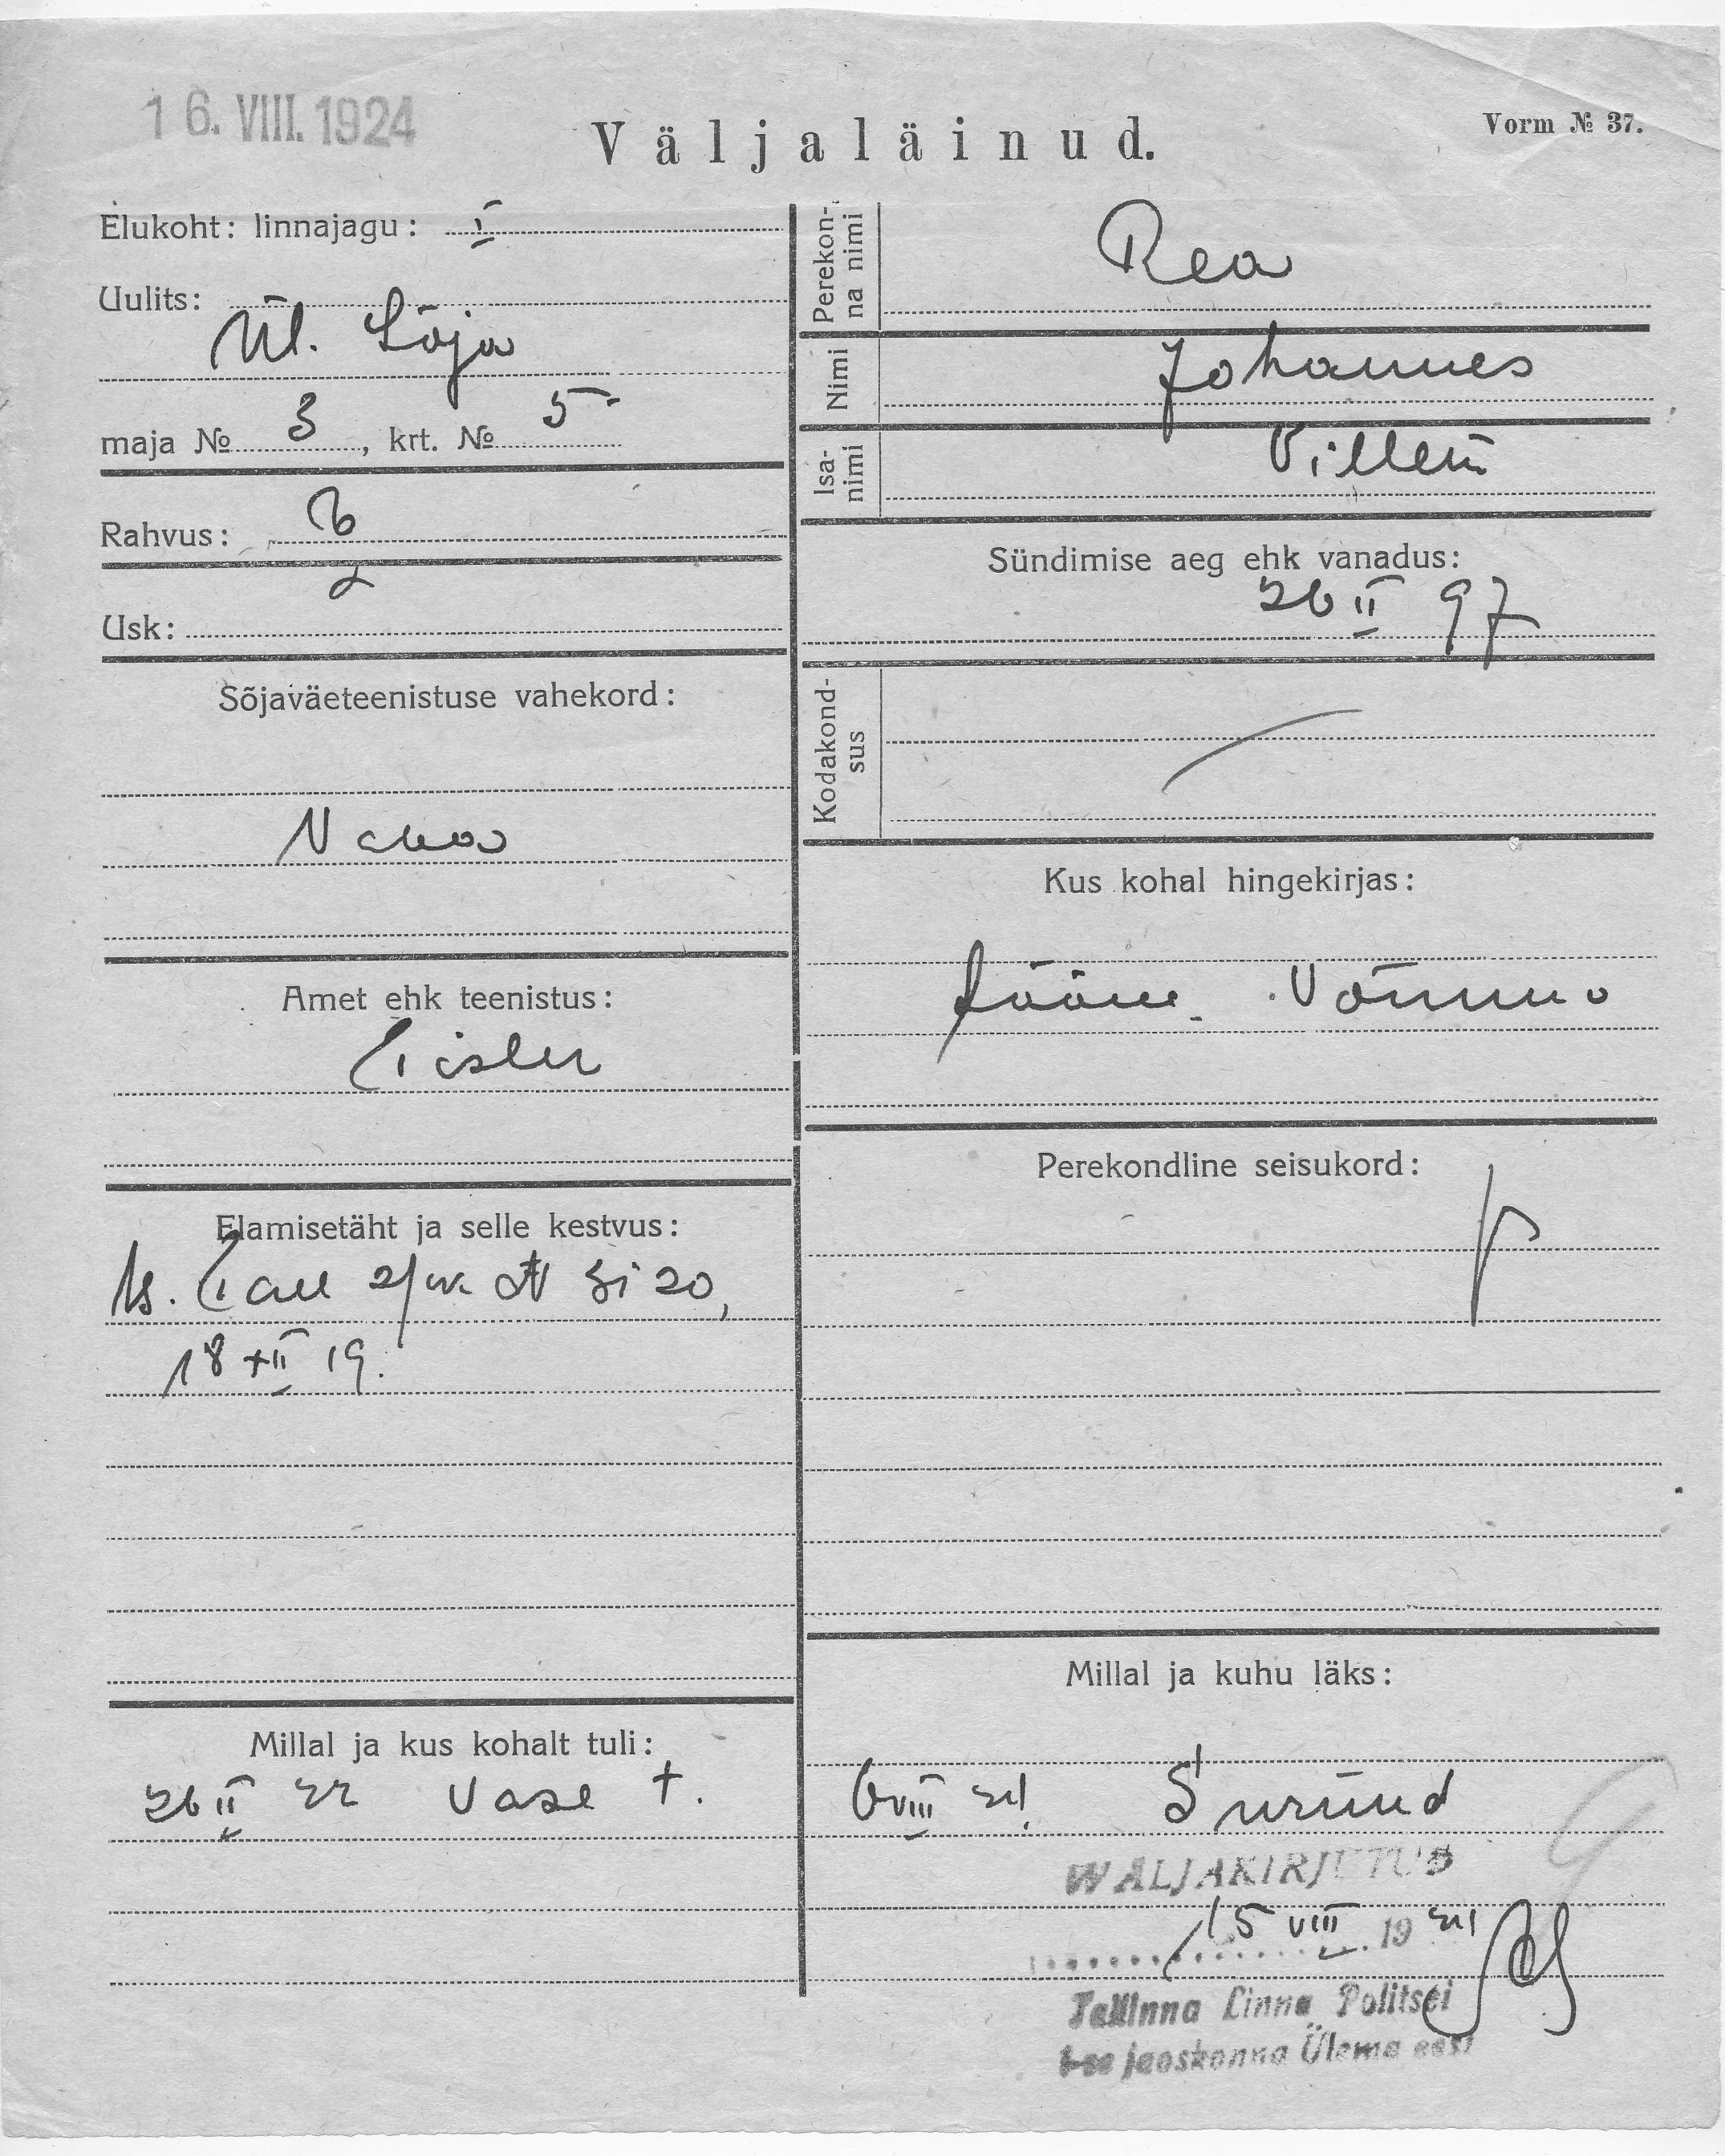 16. VIII. 1924
Väljaläinud.
Vorm № 37.
Elukoht: linnajagu: I
Uulits:
Ül. Sõja
maja № 3, krt. № 5
Rahvus:
Usk:
Sõjaväeteenistuse vahekord:
Amet ehk teenistus:
Tisler
Elamisetäht ja selle kestvus:
18 XII 19.
Millal ja kus kohalt tuli:
26 II 22 Vase t.
Perekonna nimi
Rea
Nimi
Johannes
Isanimi
Villem
Sündimise aeg ehk vanadus:
26 II 97
Kodakondsus
Kus kohal hingekirjas:
Lääne. Võnnu
Perekondline seisukord:
Millal ja kuhu läks:
6 VIII 24. Surnud
WÄLJAKIRJUTUD
15 VIII 1924
Tallinna Linna Politsei
1-se jaoskonna Ülema eest